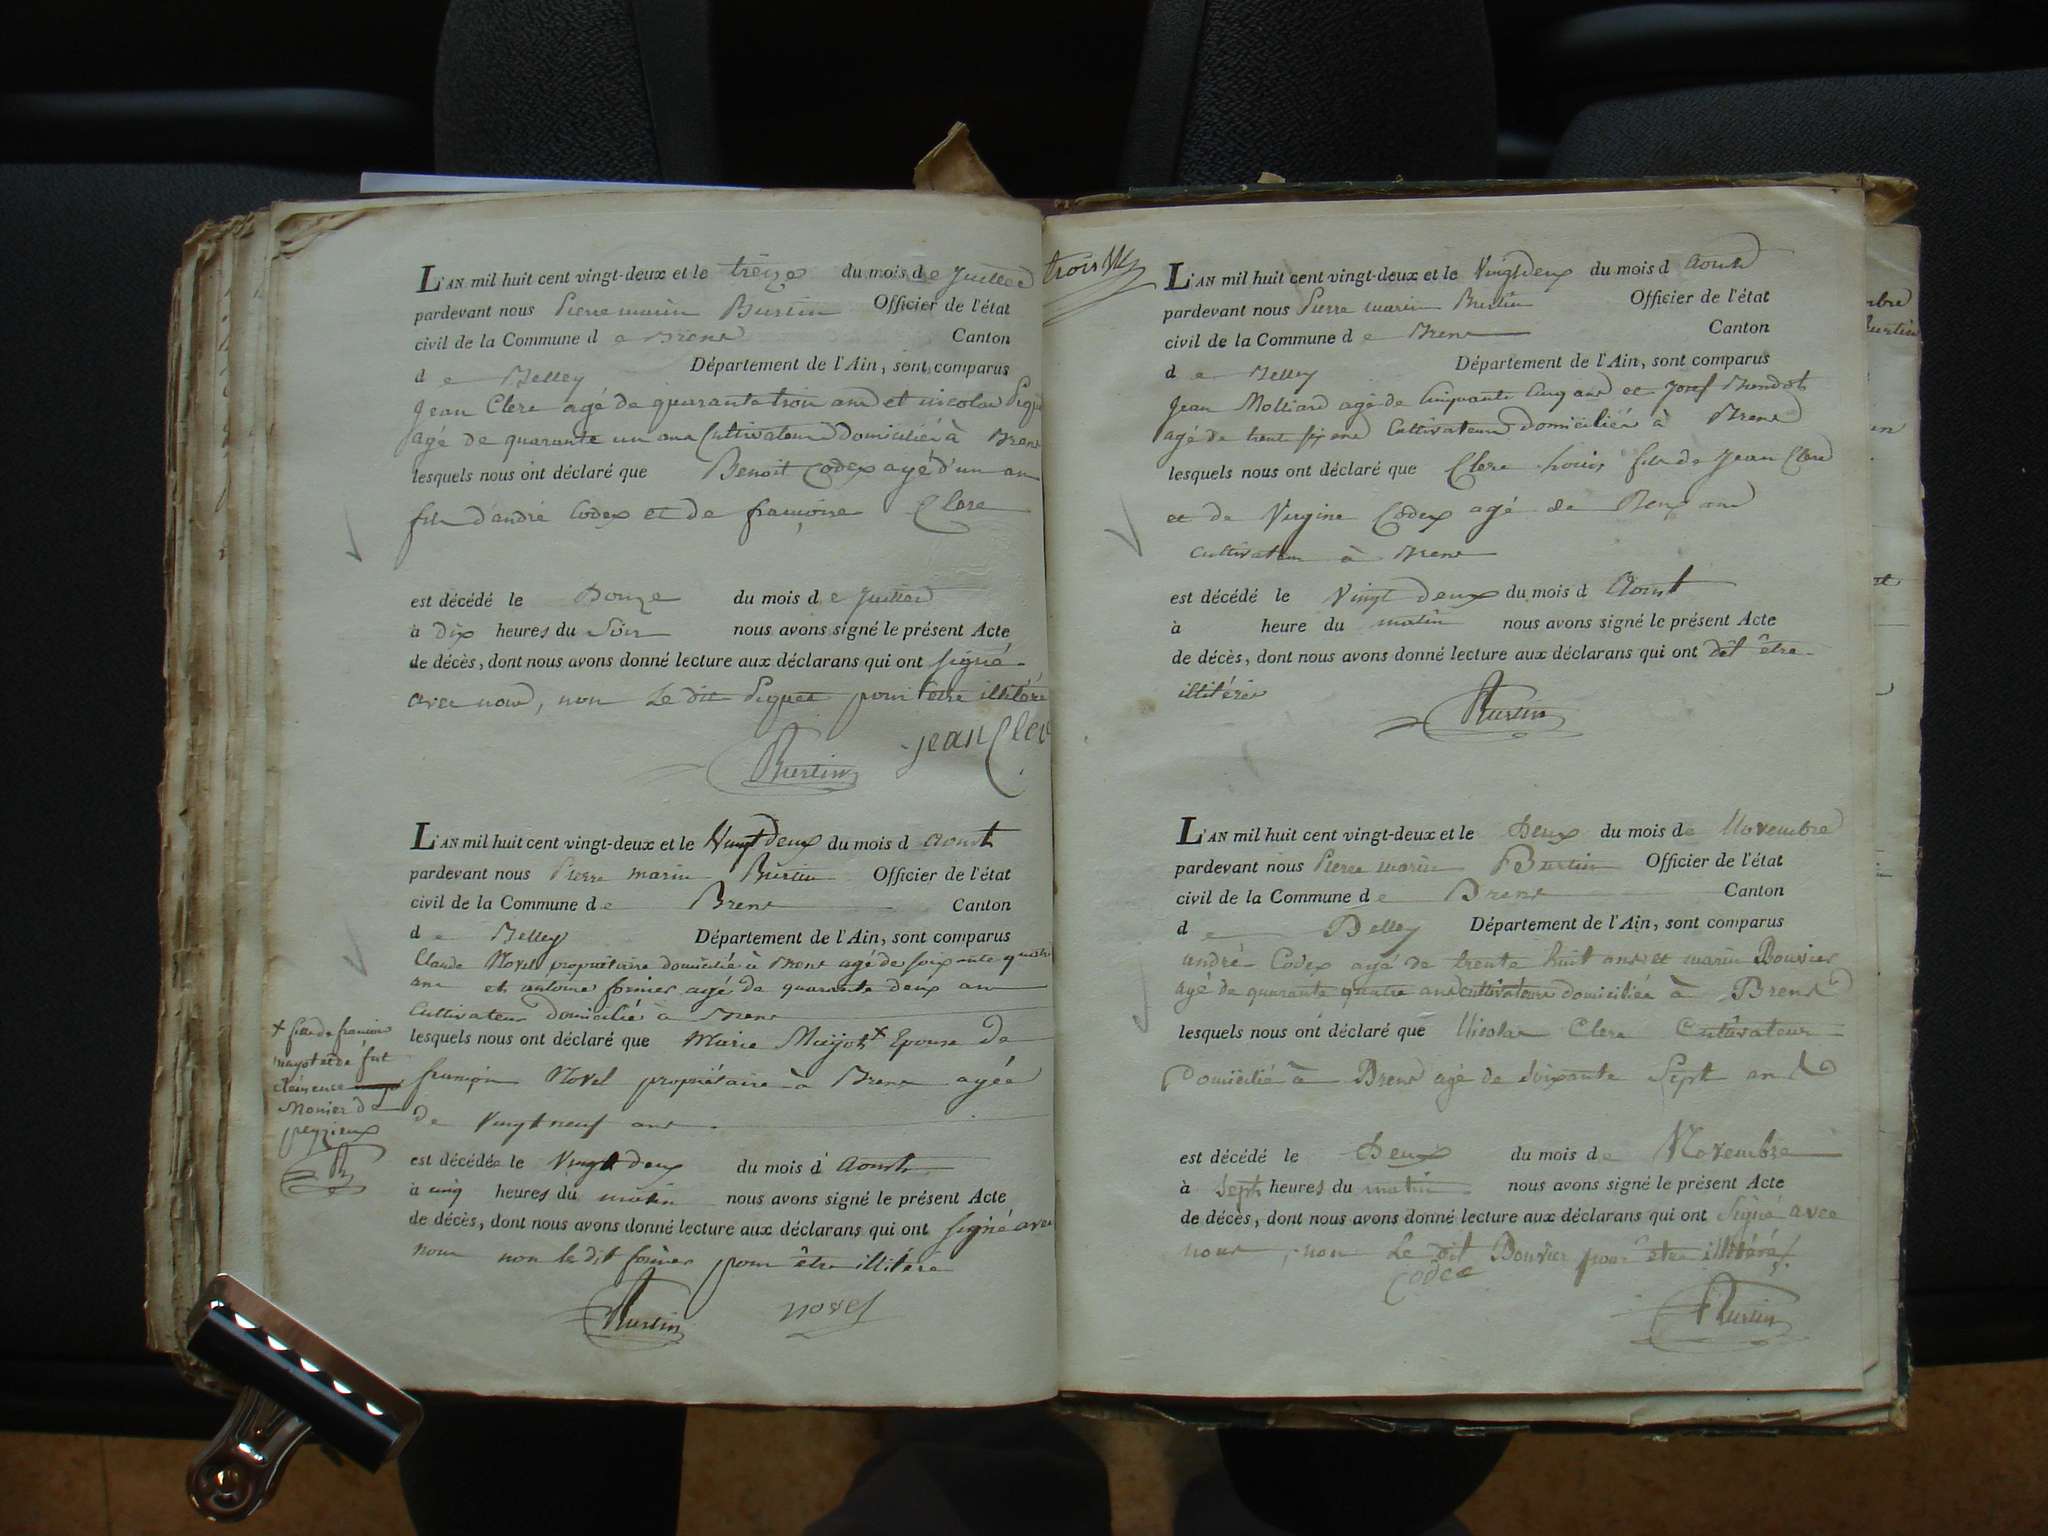 L'AN mil huit cent vingt-deux et le treize du mois de juillet
pardevant nous Pierre marin Burtin Officier de l'état
civil de la Commune de Brens Canton
de Belley Département de l'Ain, sont comparus
Jean Clerc agé de quarante trois ans et nicolas Piquet
agé de quarante un ans Cultivateurs domiciliés à Brens
lesquels nous ont déclaré que Benoit Codex agé d'un an
fils d'andré Codex et de françoise Clerc
est décédé le Douze du mois de juillet
à dix heures du Soir nous avons signé le présent Acte
de décès, dont nous avons donné lecture aux déclarans qui ont signé
avec nous, non Le dit Piquet pour être illitéré
Burtin jean Clerc
L'AN mil huit cent vingt-deux et le Vingt deux du mois d Aoust
pardevant nous Pierre marin Burtin Officier de l'état
civil de la Commune de Brens Canton
de Belley Département de l'Ain, sont comparus
Claude Novel propriétaire domicilié à Brens agé de soixante quatre
ans et antoine fornier agé de quarante deux ans
Cultivateur domicilié à Brens
lesquels nous ont déclaré que Marie Mugot + Epouse de
françois Novel propriétaire à Brens agée
de Vingt neuf ans
+ fille de françois
mugot et de fut
clémence
Monier de
peyzieux
est décédée le Vingt deux du mois d Aoust
à cinq heures du matin nous avons signé le présent Acte
de décès, dont nous avons donné lecture aux déclarans qui ont signé avec
nous non le dit fornier pour être illitéré
Burtin novel
trois
L'AN mil huit cent vingt-deux et le Vingt deux du mois d Aoust
pardevant nous Pierre marin Burtin Officier de l'état
civil de la Commune de Brens Canton
de Belley Département de l'Ain, sont comparus
Jean Molliard agé de Cinquante Cinq ans et Josef
agé de trente six ans Cultivateurs domiciliés à Brens
lesquels nous ont déclaré que Clerc Louis fils de Jean Clerc
et de Virgine Codex agé de Deux ans
Cultivateur à Brens
est décédé le Vingt deux du mois d Aoust
à heure du matin nous avons signé le présent Acte
de décès, dont nous avons donné lecture aux déclarans qui ont dit être
illitérés
Burtin
L'AN mil huit cent vingt-deux et le Deux du mois de Novembre
pardevant nous Pierre marin Burtin Officier de l'état
civil de la Commune de Brens Canton
de Belley Département de l'Ain, sont comparus
andré Codex agé de trente huit ans et marin Bouvier
agé de quarante quatre ans cultivateurs domiciliés à Brens
lesquels nous ont déclaré que Nicolas Clerc Cultivateur
Domicilié à Brens agé de soixante Sept ans
est décédé le Deux du mois de Novembre
à Sept heures du matin nous avons signé le présent Acte
de décès, dont nous avons donné lecture aux déclarans qui ont Signé avec
nous, non Le dit Bouvier pour être illitéré
Codex
Burtin